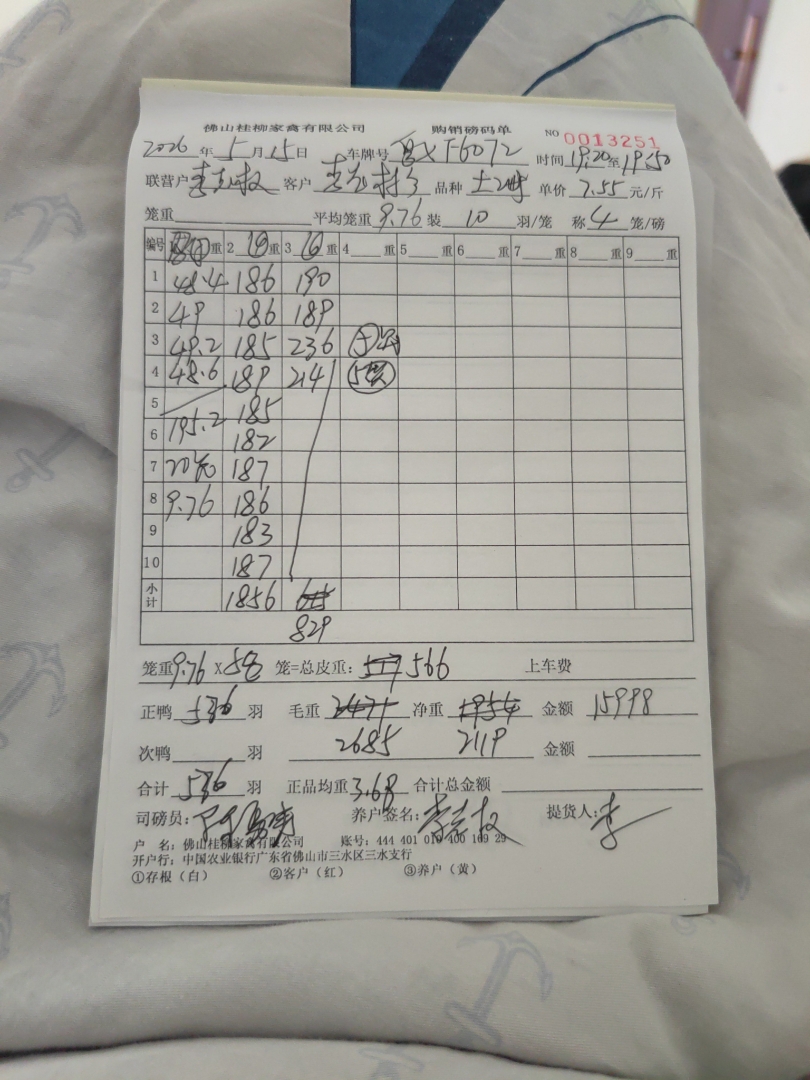 佛山桂柳家禽有限公司 购销磅码单 NO 0013251
2026年5月15日 车牌号 F6072 时间19:20至19:50
联营户 李志权 客户 品种 土2鸭 单价 7.55 元/斤
笼重 平均笼重 9.76 装 10 羽/笼 称 4 笼/磅
编号 重 2 重 3 重 4 重 5 重 6 重 7 重 8 重 9 重
1 48.4 186 190
2 49 186 189
3 49.2 185 236
4 48.6 189 214
5 185
6 195.2 182
7 187
8 9.76 186
9 183
10 187
小计 1856
829
笼重 9.76 X 58 笼=总皮重: 566 上车费
正鸭 536 羽 毛重 净重 金额 15998
次鸭 羽 2685 2119 金额
合计 536 羽 正品均重 3.68 合计总金额
司磅员: 养户签名: 李志权 提货人: 李
户 名: 佛山桂柳家禽有限公司 账号: 444 401 010 400 169 29
开户行: 中国农业银行广东省佛山市三水区三水支行
①存根(白) ②客户(红) ③养户(黄)